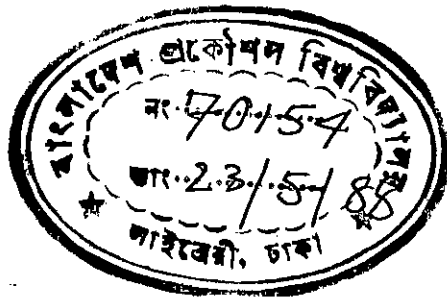 বাংলাদেশ প্রকৌশল বিশ্ববিদ্যালয়
নং..70154
তাং..23/5/88
লাইব্রেরী, ঢাকা